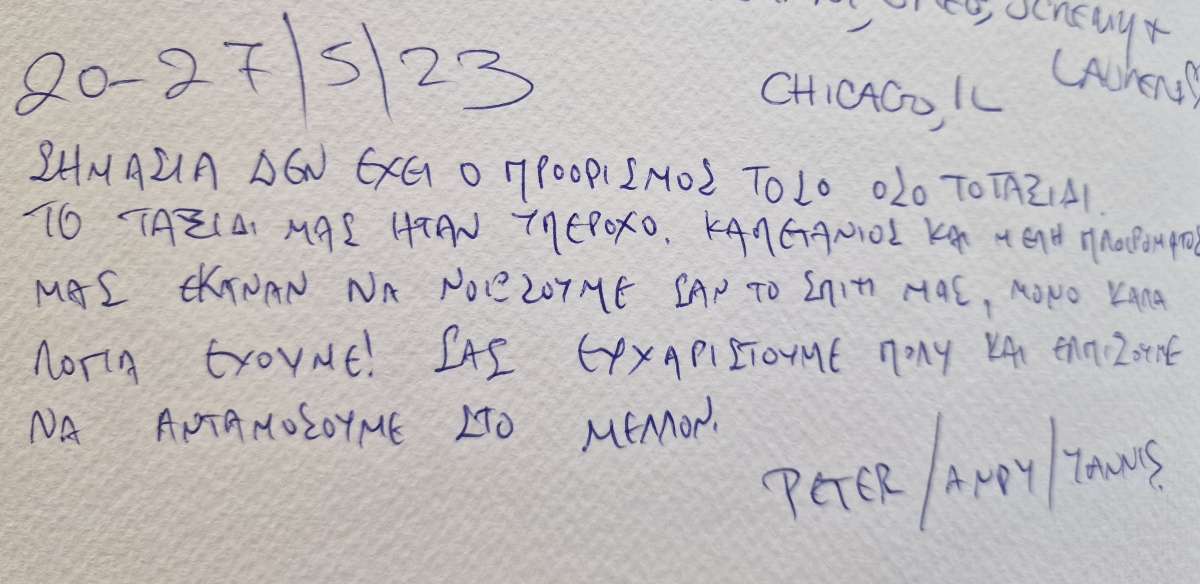 JEREMY +
LAUREN
CHICAGO, IL
20-27/5/23
ΣΗΜΑΣΙΑ ΔΕΝ ΕΧΕΙ Ο ΠΡΟΟΡΙΣΜΟΣ ΤΟΣΟ ΟΣΟ ΤΟ ΤΑΞΙΔΙ.
ΤΟ ΤΑΞΙΔΙ ΜΑΣ ΗΤΑΝ ΥΠΕΡΟΧΟ. ΚΑΠΕΤΑΝΙΟΣ ΚΑΙ ΜΕΛΗ
ΜΑΣ ΕΚΑΝΑΝ ΝΑ ΣΑΝ ΤΟ ΣΠΙΤΙ ΜΑΣ, ΜΟΝΟ ΚΑΛΑ
ΛΟΓΙΑ ΕΧΟΥΜΕ! ΣΑΣ ΕΥΧΑΡΙΣΤΟΥΜΕ ΠΟΛΥ ΚΑΙ ΕΛΠΙΖΟΥΜΕ
ΝΑ ΑΝΤΑΜΟΣΟΥΜΕ ΣΤΟ ΜΕΛΛΟΝ.
PETER/ANDY/YANNIS